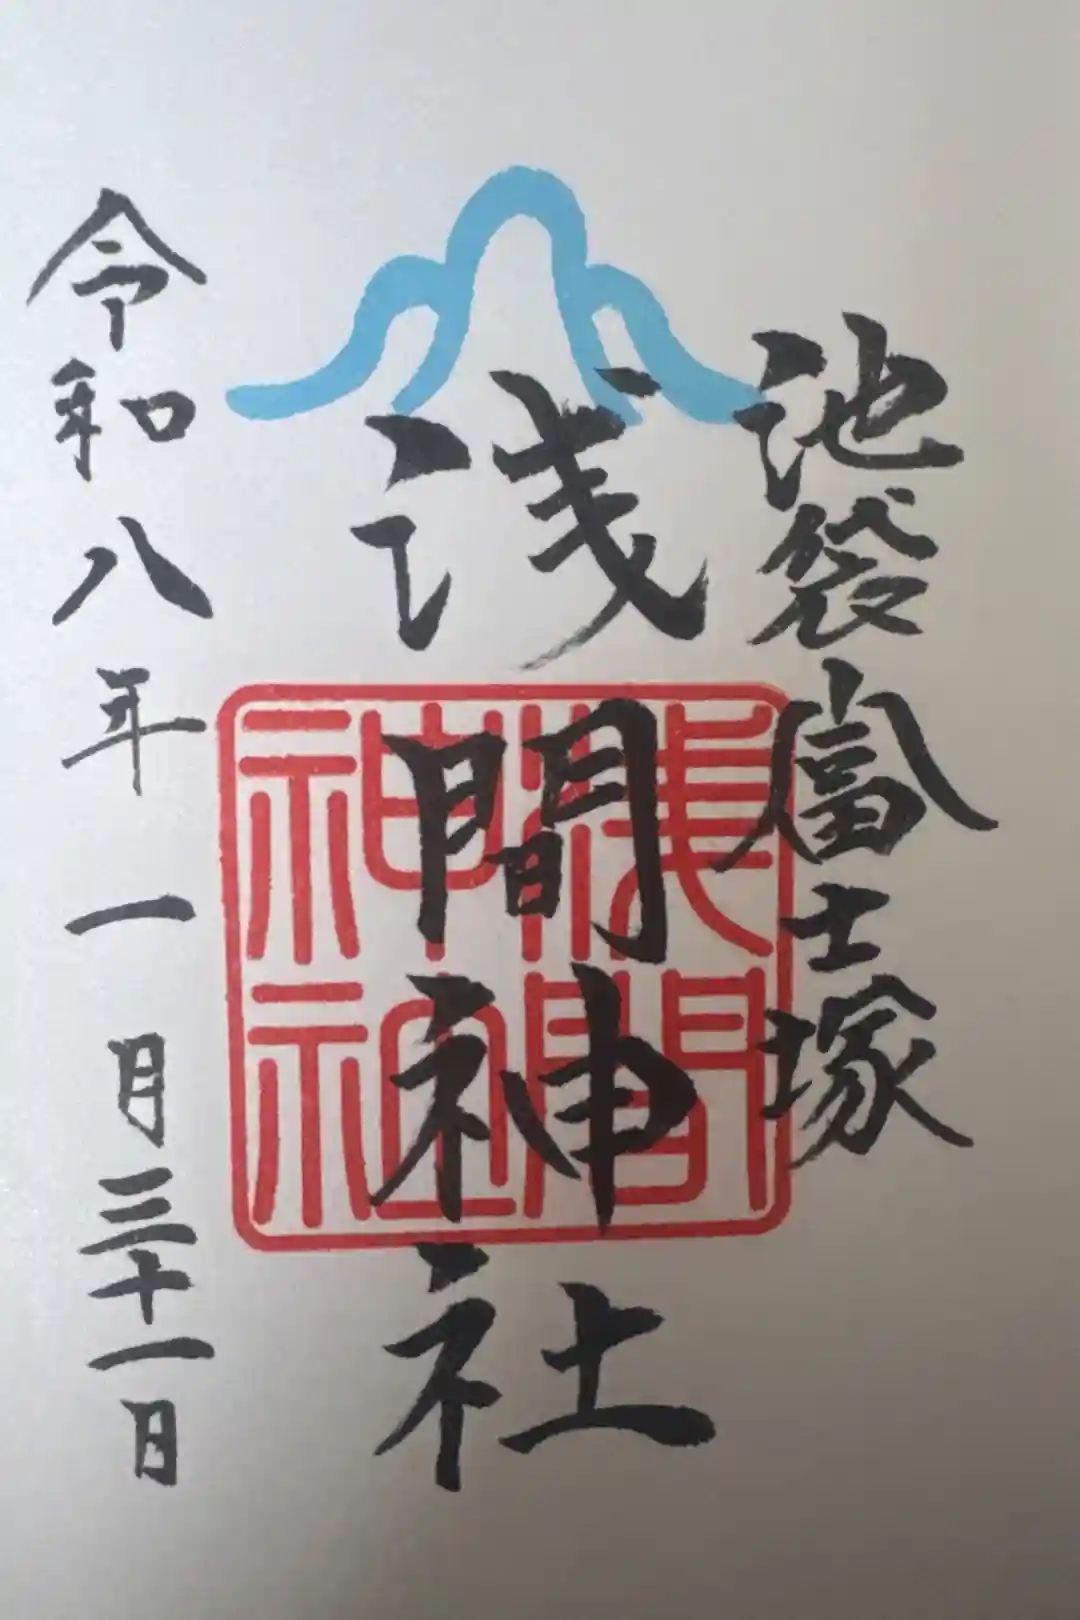 池袋富士塚
浅間神社
浅間
神社
令和八年一月三十一日